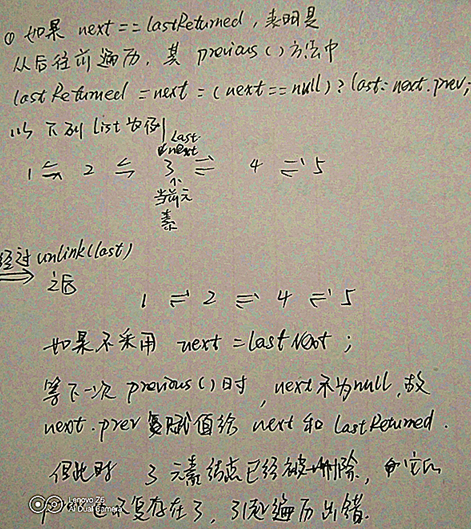 ① 如果 next == lastReturned, 表明是
从后往前遍历, 其 previous() 方法中
lastReturned = next = (next == null) ? last : next.prev;
以下列 list 为例
last
next
1 ⇌ 2 ⇌ 3 ⇌ 4 ⇌ 5
↑
当前元
素
经过 unlink(last)
⇒ 之后
1 ⇌ 2 ⇌ 4 ⇌ 5
如果不采用 next = lastNext ;
等下一次 previous() 时, next 不为null, 故
next.prev 复赋值给 next 和 lastReturned.
但此时 3 元素结点已经被删除, 它的
不复存在了, 引起遍历出错.
Lenovo Z6
AI Dual Camera